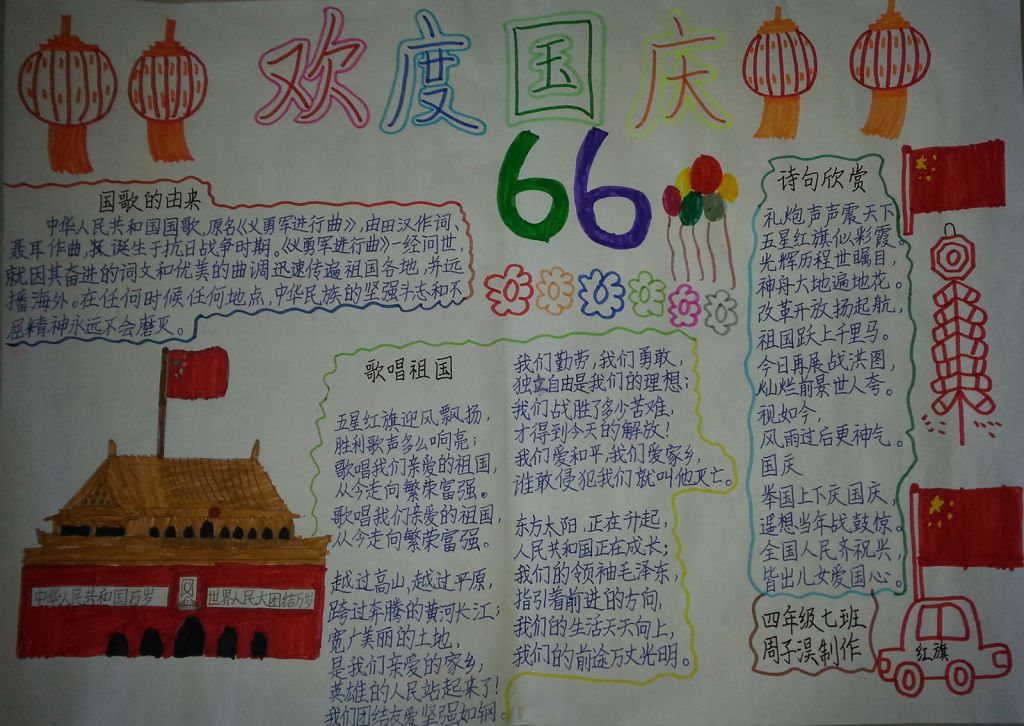 欢度国庆
66
国歌的由来
中华人民共和国国歌,原名《义勇军进行曲》,由田汉作词、
聂耳作曲,诞生于抗日战争时期。《义勇军进行曲》一经问世,
就因其奋进的词文和优美的曲调迅速传遍祖国各地,并远
播海外。在任何时候任何地点,中华民族的坚强斗志和不
屈精神永远不会磨灭。
中华人民共和国万岁
世界人民大团结万岁
歌唱祖国
五星红旗迎风飘扬,
胜利歌声多么响亮;
歌唱我们亲爱的祖国,
从今走向繁荣富强。
歌唱我们亲爱的祖国,
从今走向繁荣富强。
越过高山,越过平原,
跨过奔腾的黄河长江;
宽广美丽的土地,
是我们亲爱的家乡,
英雄的人民站起来了!
我们团结友爱坚强如钢。
我们勤劳,我们勇敢,
独立自由是我们的理想;
我们战胜了多少苦难,
才得到今天的解放!
我们爱和平,我们爱家乡,
谁敢侵犯我们就叫他灭亡。
东方太阳,正在升起,
人民共和国正在成长;
我们的领袖毛泽东,
指引着前进的方向,
我们的生活天天向上,
我们的前途万丈光明。
诗句欣赏
礼炮声声震天下
五星红旗似彩霞。
光辉历程世瞩目,
神舟大地遍地花。
改革开放扬起航,
祖国跃上千里马。
今日再展战洪图,
灿烂前景世人夸。
视如今,
风雨过后更神气。
国庆
举国上下庆国庆,
遥想当年战鼓惊。
全国人民齐祝兴,
皆出儿女爱国心。
四年级七班
周子淏制作
红旗